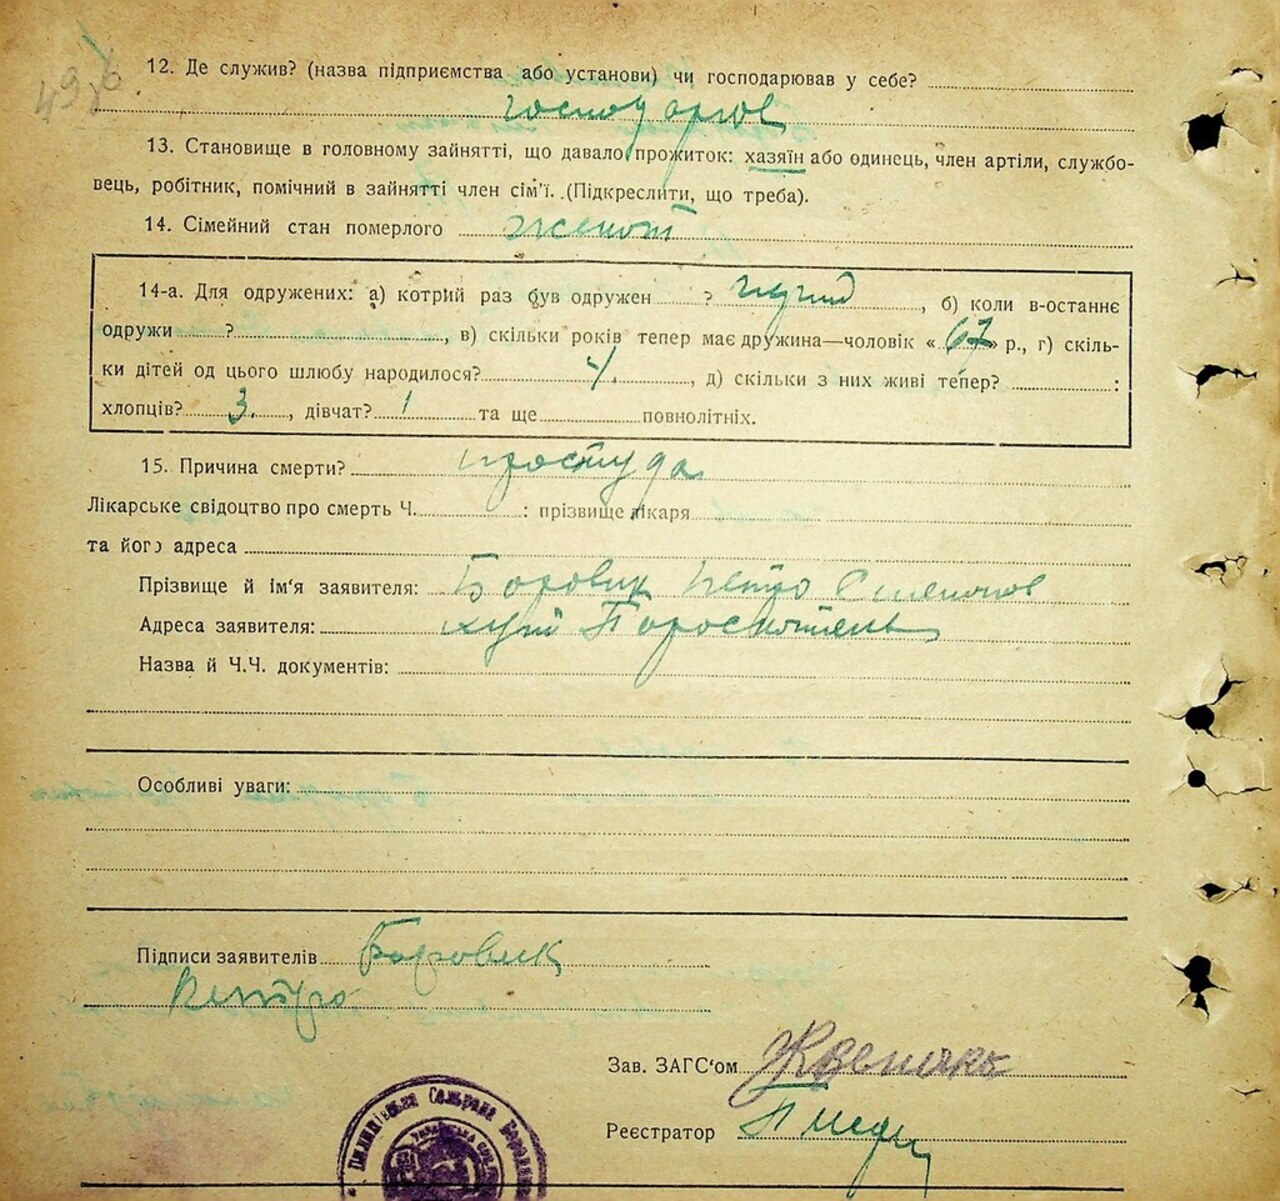 12. Де служив? (назва підприємства або установи) чи господарював у себе?
господарюв
13. Становище в головному зайнятті, що давало прожиток: хазяїн або одинець, член артіли, службо-
вець, робітник, помічний в зайнятті член сім'ї. (Підкреслити, що треба).
14. Сімейний стан померлого женат
14-а. Для одружених: а) котрий раз був одружен ? , б) коли в-останнє
одружи ? , в) скільки років тепер має дружина—чоловік « 67 » р., г) скіль-
ки дітей од цього шлюбу народилося? 4. , д) скільки з них живі тепер? :
хлопців? 3. , дівчат? 1 та ще повнолітніх.
15. Причина смерти? простуда
Лікарське свідоцтво про смерть Ч. : прізвище лікаря
та його адреса
Прізвище й ім'я заявителя: Боровик Петро
Адреса заявителя: хут
Назва й Ч.Ч. документів:
Особливі уваги:
Підписи заявителів Боровик
Петро
Зав. ЗАГС'ом
Реєстратор
Сельрада